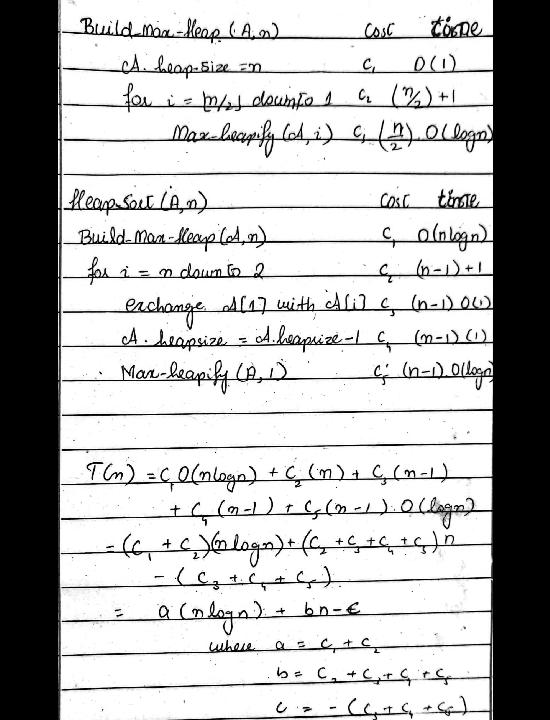 Build-max-Heap (A, n) cost time
A. heap-size = n c₁ O(1)
for i = ⌊n/2⌋ downto 1 c₂ (n/2) + 1
Max-heapify (A, i) c₃ (n/2). O(logn)
Heap-Sort (A, n) cost time
Build-Max-Heap (A, n) c₁ O(nlogn)
for i = n downto 2 c₂ (n-1)+1
exchange A[1] with A[i] c₃ (n-1) O(1)
A. heapsize = A.heapsize-1 c₄ (n-1) (1)
Max-heapify (A, 1) c₅ (n-1). O(logn)
T(n) = c₁ O(nlogn) + c₂ (n) + c₃ (n-1)
+ c₄ (n-1) + c₅ (n-1). O(logn)
= (c₁ + c₂)(nlogn) + (c₂ + c₃ + c₄ + c₅) n
- (c₃ + c₄ + c₅)
= a (nlogn) + bn - c
where a = c₁ + c₂
b = c₂ + c₃ + c₄ + c₅
c = - (c₃ + c₄ + c₅)